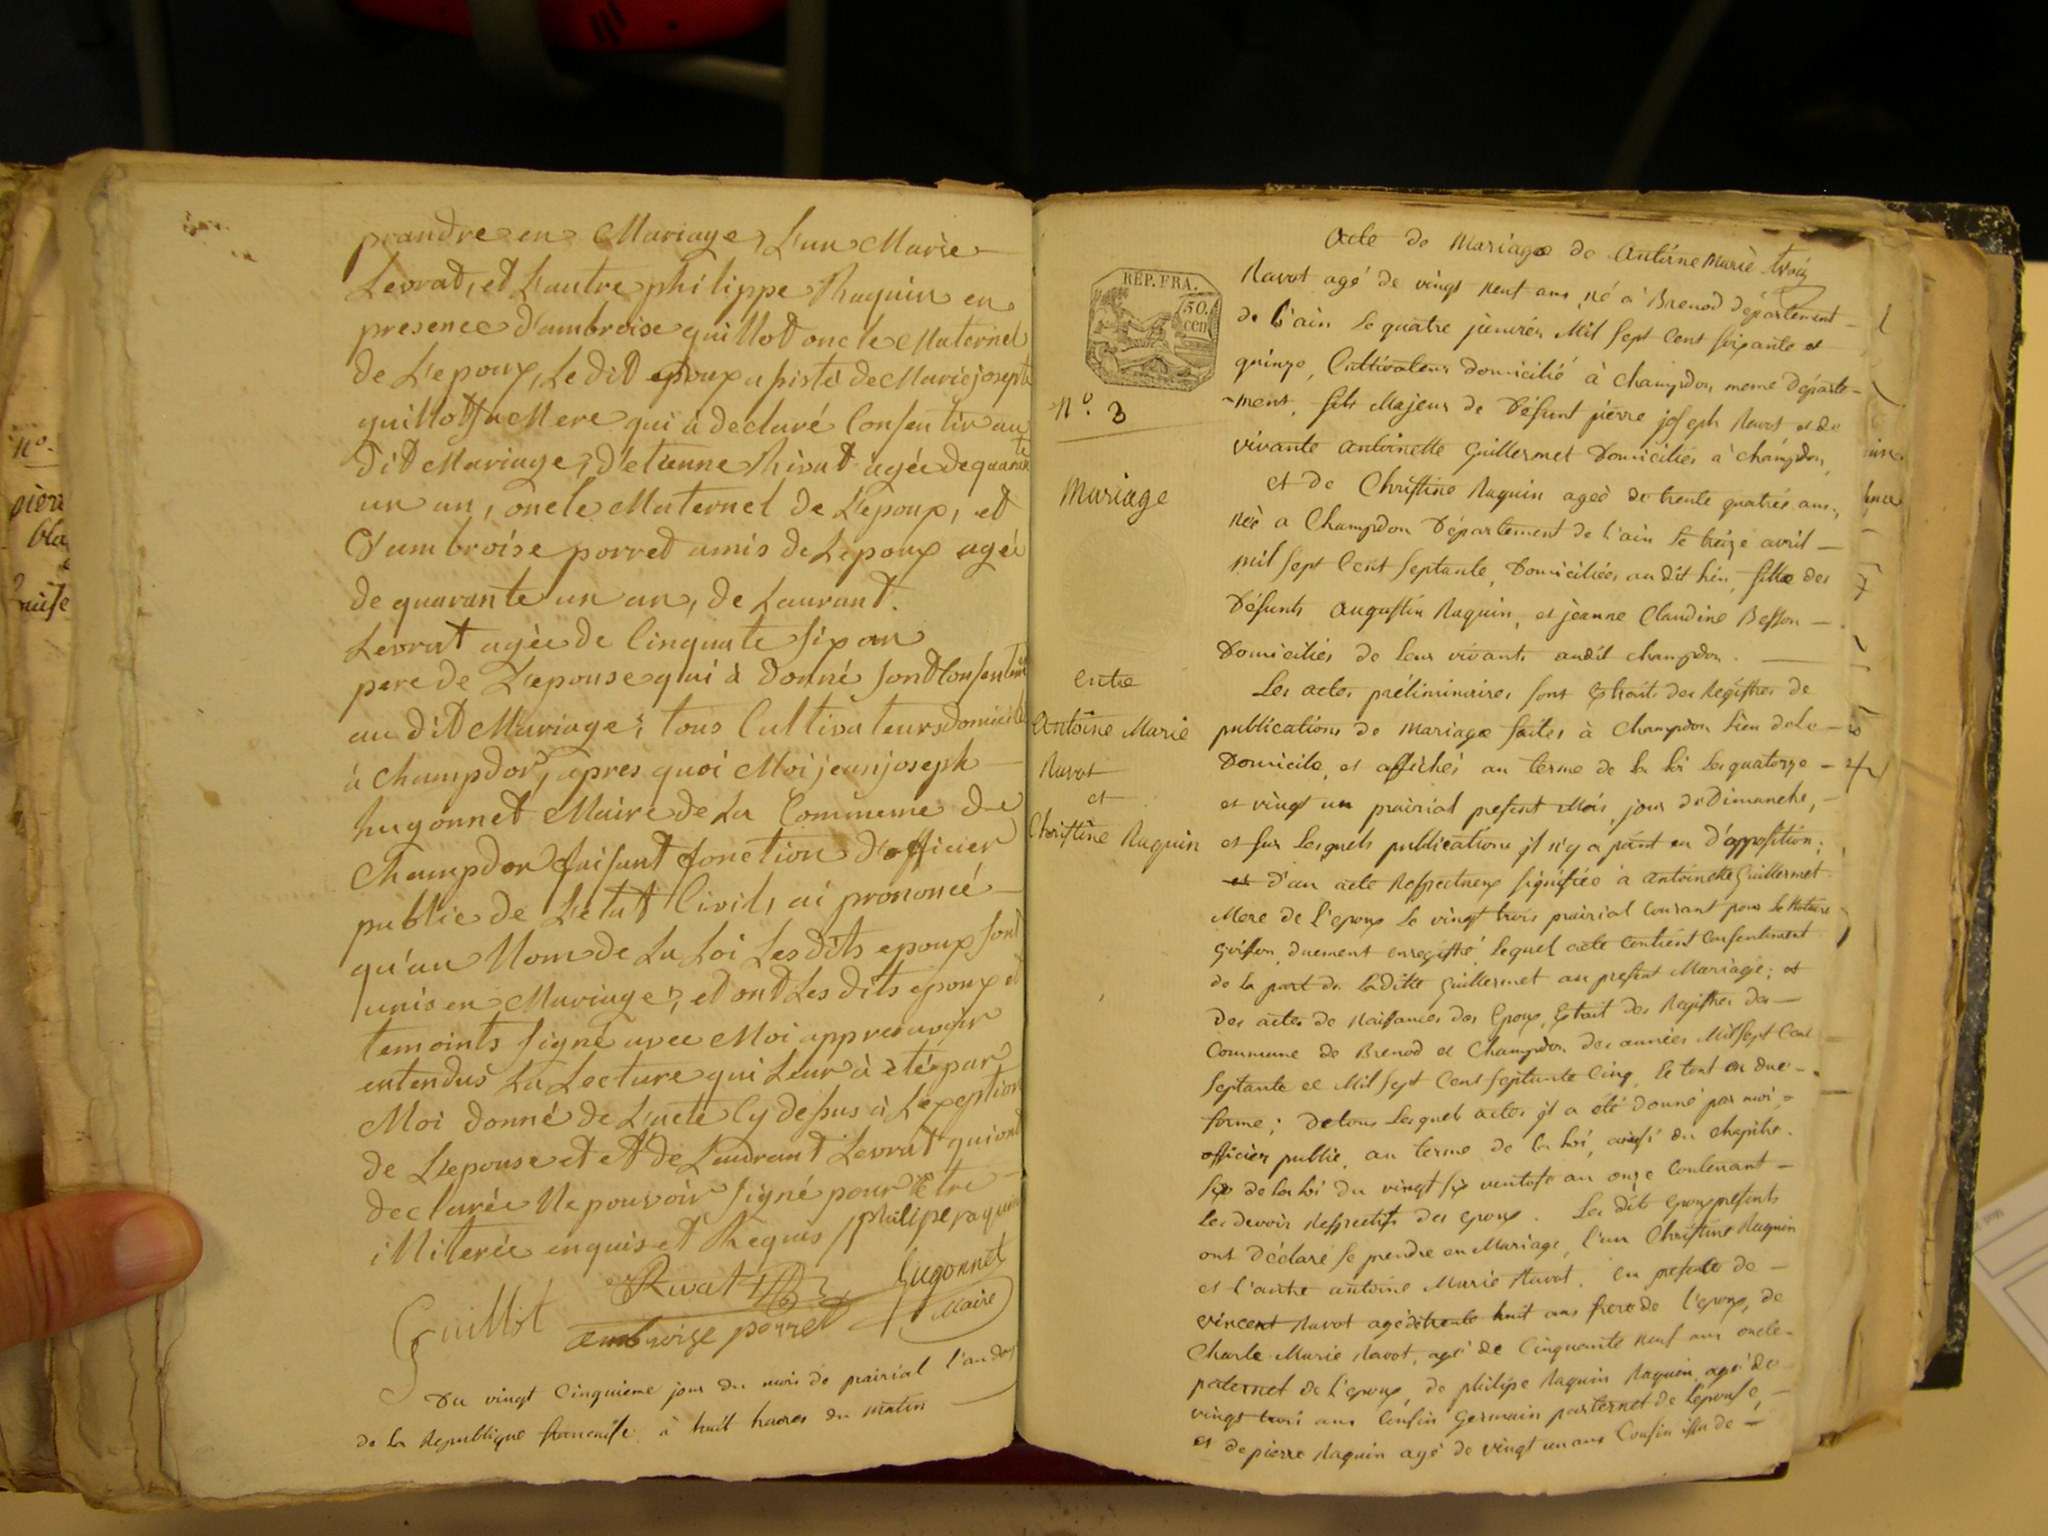 prandre en Mariage, L'un Marie
Levrat, et L'autre philippe Raquin en
presence d'ambroise guillot oncle Maternel
de L'epoux, Le dit epoux apisté de Marie josepte
guillot sa Mere qui à declaré Consentir au
dit Mariage, d'etienne Rivat agée de quarante
un an, oncle Maternel de L'epoux, et
D'ambroise porret amis de L'epoux agée
de quarante un an, de Laurant.
Levrat agée de Cinquante six an
pere de L'epouse qui à donné son Consentm
au dit Mariage; tous Cultivateurs domicilé
à Champdor, apres quoi Moi jean joseph
hugonnet Maire de La Commune de
Champdor faisant fonction d'officier
public de L'etat Civil, ai prononcé
qu'au Nom de La Loi Les dits epoux sont
unis en Mariage; et ont Les dits epoux et
temoints signé avec Moi appres avoir
entendus La Lecture qui Leur à été par
Moi donné de L'acte Cy desus à L'exeption
de L'epouse et et de Laurant Levrat qui ont
declarée Ne pouvoir signé pour Etre
illiterée enquis et Requis / philipe raquin
Rivat hugonnet
Guillot ambroise porret Maire
Du vingt Cinquieme jour du mois de prairial l'an dos
de la Republique francaise à huit heures du matin
REP. FRA.
50.
cen
N.o 3
Mariage
entre
Antoine Marie
Ravot
et
Christine Raquin
Acte de Mariage de Antoine Marie trois
Ravot agé de vingt neuf ans, né à Brenod département
de l'ain le quatre jenvier Mil sept Cent soixante et
quinze, Cultivateur domicilié à Champdor, meme départe-
-ment, fils Majeur de Défunt pierre joseph Ravot et de
vivante antoinette Guillermet Domiciliés à Champdor,
et de Christine Raquin ageé de trente quatres ans,
née a Champdor Département de l'ain le treize avril
mil sept Cent septante, Domiciliées audit lieu, fille des
Défunts augustin Raquin, et jeanne Claudine Besson
Domiciliés de leur vivants audit champdor.
Les actes préliminaires sont Extraits des Régistres de
publications de Mariage faites à Champdor lieu de le
Domicile, et affichés au terme de la loi les quatorze
et vingt un prairial present Mois, jour de Dimanche,
et sur lesquels publications il n'y a point eu d'opposition;
et d'un acte Respectueux signifiée à antoinette Guillermet
Mere de l'epoux le vingt trois prairial Courant pour le Notaire
duement enregistré, lequel acte Contient Consentement
de la part de laditte guillermet au present Mariage; et
des actes de Naissances des Epoux, Extrait des Registres des
Commune de Brenod et Champdor des années Mil sept Cent
septante et Mil sept Cent septante Cinq, le tout en due
forme; de tous lesquels actes il a été donné par moi,
officier public, au terme de la loi, ainsi du chapitre
six de la loi du vingt six ventose an onze Contenant
les devoirs Respectifs des epoux. Les dit Epoux presents
ont Déclaré se prendre en Mariage, l'un Christine Raquin
et l'autre antoine Marie Ravot. En presence de
vincent Ravot agé de trente huit ans frere de l'epoux, de
Charle Marie Ravot, agé de Cinquante neuf ans oncle
paternel de l'epoux, de philipe Raquin Raquin agé de
vingt trois ans Cousin Germain parternel de l'epouse,
et de pierre Raquin agé de vingt un ans Cousin issu de